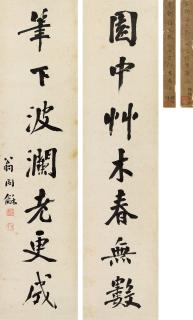 園中艸木春無數
筆下波瀾老更成
翁同龢